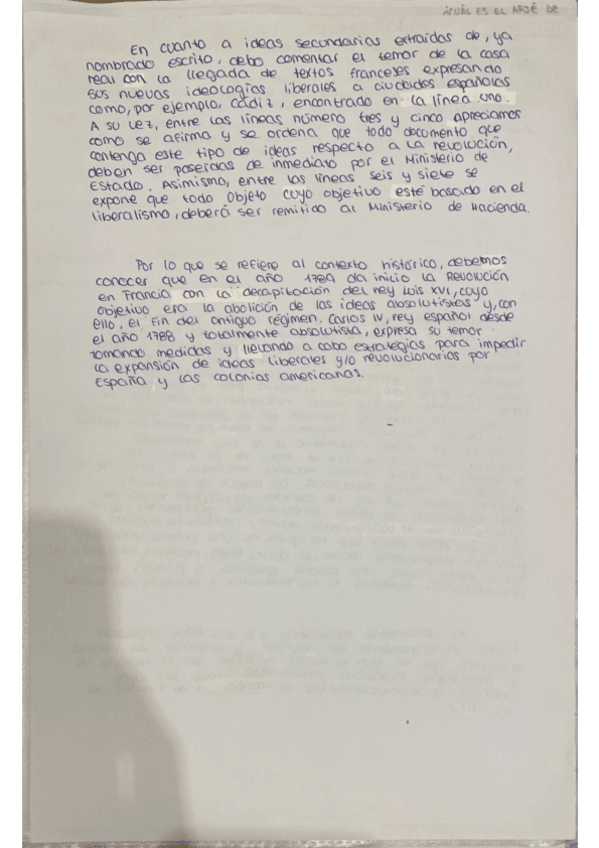 ¿CUÁL ES EL
En cuanto a ideas secundarias extraídas de, ya
nombrado escrito, debo comentar el temor de la casa
real con la llegada de textos franceses expresando
sus nuevas ideologías liberales a ciudades españolas
como, por ejemplo, Cádiz, encontrado en la línea uno.
A su vez, entre las líneas número tres y cinco apreciamos
como se afirma y se ordena que todo documento que
contenga este tipo de ideas respecto a la revolución,
deben ser poseídas de inmediato por el Ministerio de
Estado. Asimismo, entre las líneas seis y siete se
expone que todo objeto cuyo objetivo esté basado en el
liberalismo, deberá ser remitido al Ministerio de Hacienda.
Por lo que se refiere al contexto histórico, debemos
conocer que en el año 1789 da inicio la Revolución
en Francia con la decapitación del rey Luis XVI, cuyo
objetivo era la abolición de las ideas absolutistas y, con
ello, el fin del antiguo régimen. Carlos IV, rey español desde
el año 1788 y totalmente absolutista, expresa su temor
tomando medidas y llevando a cabo estrategias para impedir
la expansión de ideas liberales y/o revolucionarias por
España y las colonias americanas.